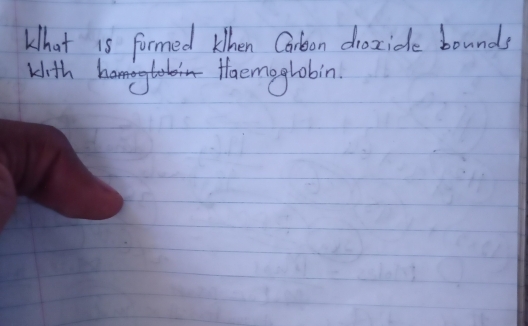 What is formed When Carbon dioxide bounds
With hamoglobin Haemoglobin.